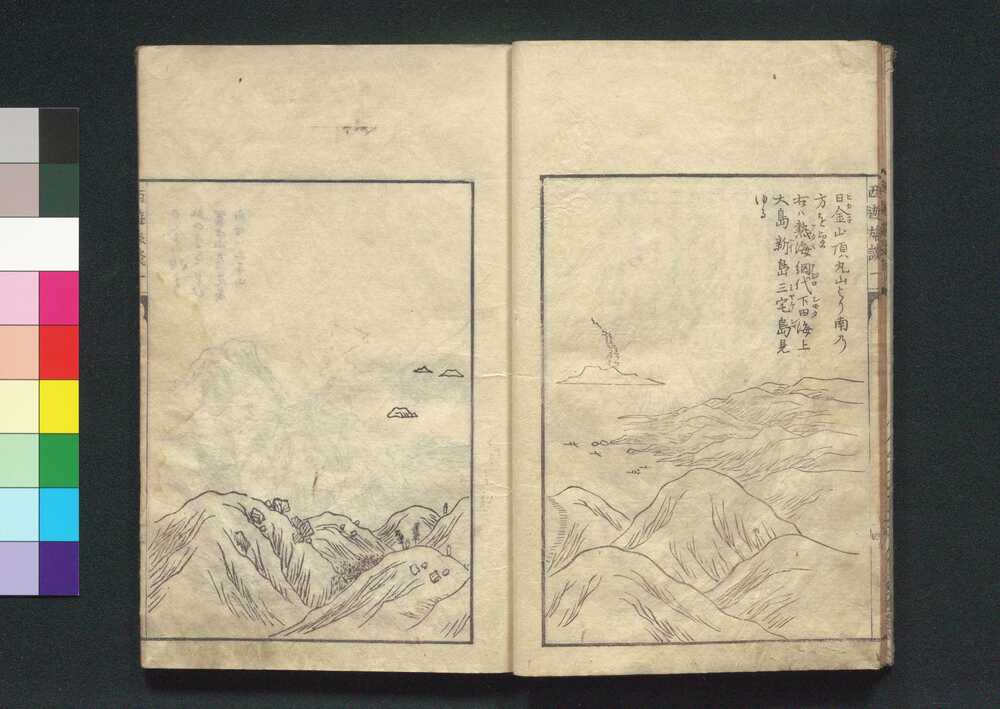 日金山頂丸山より南乃
方を望
右ハ熱海網代下田海上
大島新島三宅島見
ゆる